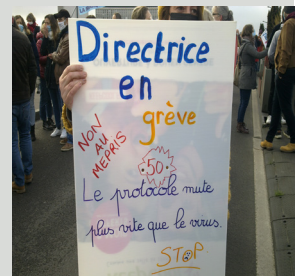 Directrice
en
grève
NON
AU
MEPRIS
50
Le protocole mute
plus vite que le virus.
STOP